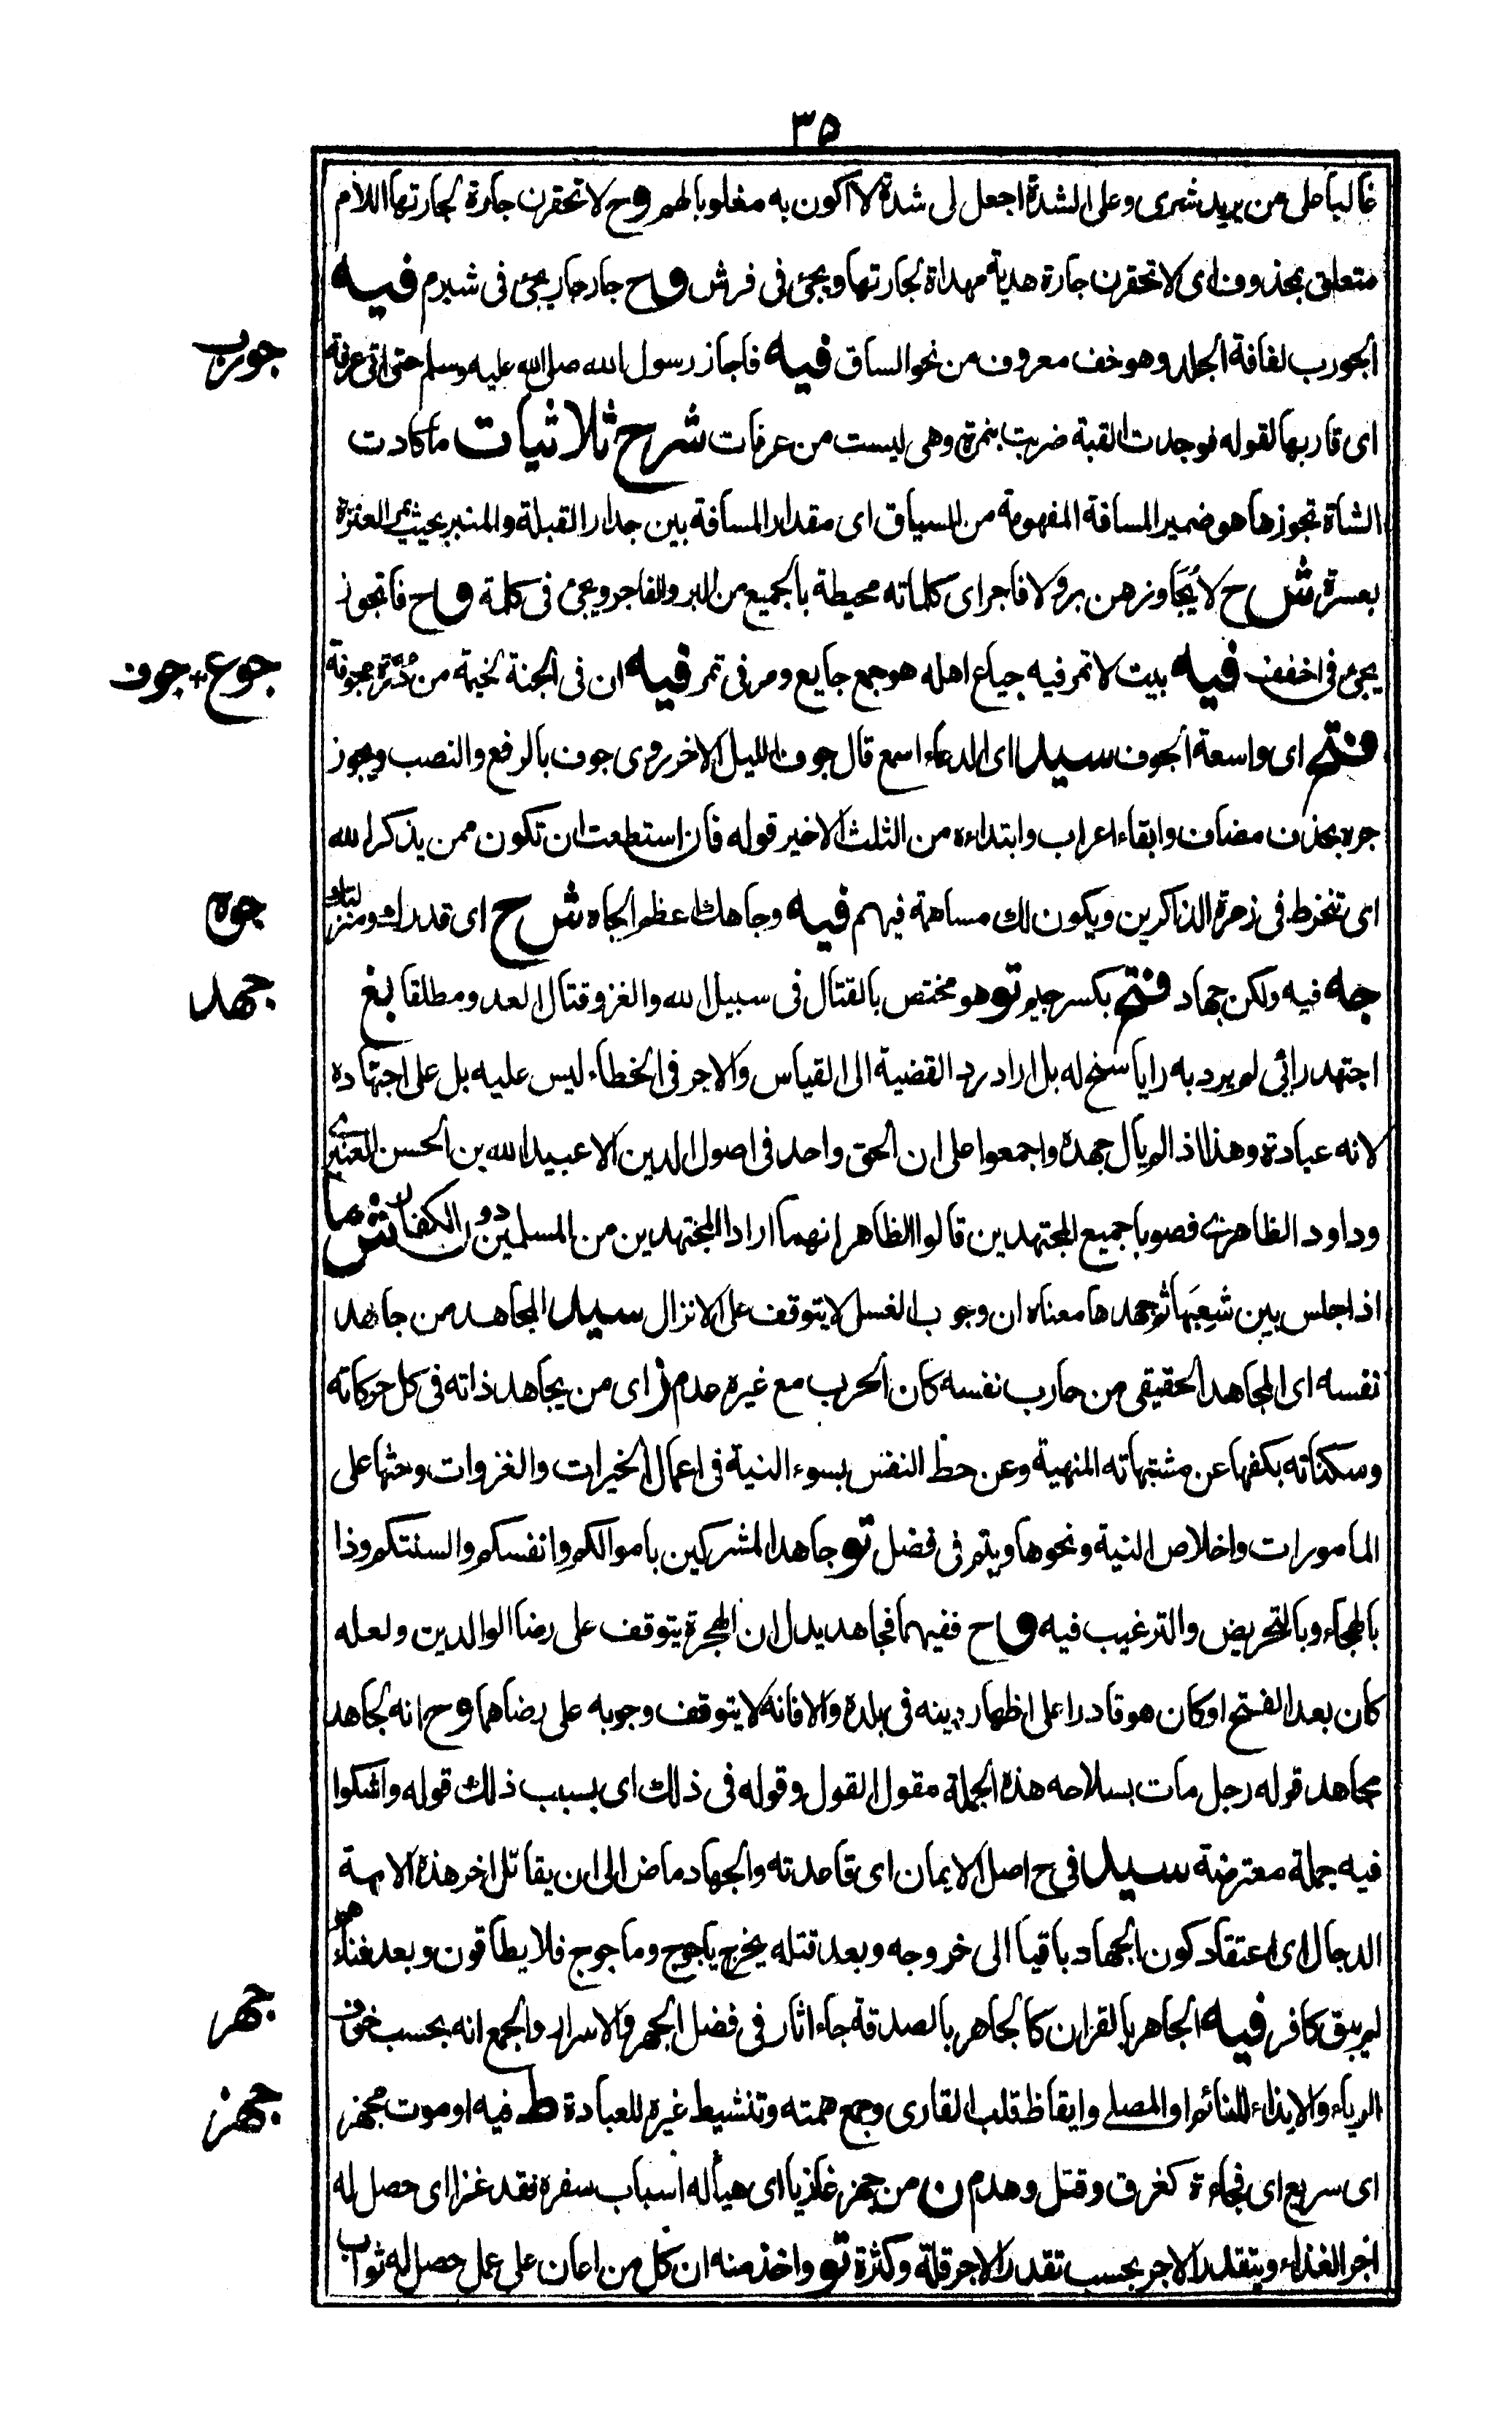 ٣٥
غالبا على من يريد شرى وعلى الشدة اجعل لى شدة لا اكون به مغلوبا لهم وح لا تحقرن جارة لجارتها اللام
متعلق بمحذوف اى لا تحقرن جارة هدية مهداة لجارتها ويجئ فى فرش وح جار حار يجئ فى شبرم فيه
الجورب لفافة الجلد وهو خف معروف من نحو الساق فيه فاجاز رسول الله صلى الله عليه وسلم حتى اتى عرفة
جورب
اى قاربها لقوله فوجدت القبة ضربت بنمرة وهى ليست من عرفات شرح ثلاثيات ما كادت
الشاة تجوزها هو ضمير المسافة المفهومة من السياق اى مقدار المسافة بين جدار القبلة والمنبر بحيث تمر العنزة
بعسرة ش ح لا يُجَاوزهن بر ولا فاجر اى كلماته محيطة بالجميع من البر والفاجر ويجئ فى كلمة وح فاتجوز
يجئ فى اخفف فيه بيت لا تمر فيه جياع اهله هو جمع جايع ومر فى تمر فيه ان فى الجنة لخيمة من دُرَّة مجوفة
جوع + جوف
فتح اى واسعة الجوف سيد اى الدعاء اسمع قال جوف الليل الاخر روى جوف بالرفع والنصب ويجوز
جره بحذف مضاف وابقاء اعراب وابتداءه من الثلث الاخير قوله فان استطعت ان تكون ممن يذكر الله
اى تنخرط فى زمرة الذاكرين ويكون لك مساهمة فيهم فيه وجاهك اعظم الجاه ش ح اى قدرك ومنزلتك
جوه
جه فيه ولكن جهاد فتح بكسر جيم تو هو مختص بالقتال فى سبيل الله والغزو قتال العدو مطلقا بغ
جهد
اجتهد رائى لم يرد به رايا سنح له بل اراد رد القضية الى القياس والاجر فى الخطاء ليس عليه بل على اجتهاده
لانه عبادة وهذا اذا لم يال جهده واجمعوا على ان الحق واحد فى اصول الدين الا عبيد الله بن الحسن العنبرى
وداود الظاهرى فصوبا جميع المجتهدين قالوا الظاهر انهما ارادا المجتهدين من المسلمين دون الكفار ش ما
اذا جلس بين شعبها ثم جهدها معناه ان وجوب الغسل لا يتوقف على الانزال سيد المجاهد من جاهد
نفسه اى المجاهد الحقيقى من حارب نفسه كان الحرب مع غيره عدم ز اى من يجاهد ذاته فى كل حركاته
وسكناته بكفها عن مشتهاته المنهية وعن حظ النفس بسوء النية فى اعمال الخيرات والغزوات وحثها على
المامورات واخلاص النية ونحوها ويتم فى فضل تو جاهدا المشركين باموالكم وانفسكم والسنتكم وذا
بالهجاء وبالتحريض والترغيب فيه وح ففيهما فجاهد يدل ان الهجرة يتوقف على رضا الوالدين ولعله
كان بعد الفتح او كان هو قادرا على اظهار دينه فى بلده والا فانه لا يتوقف وجوبه على رضاهما وح انه لجاهد
مجاهد قوله رجل مات بسلاحه هذه الجملة مقول القول وقوله فى ذلك اى بسبب ذلك قوله واشكوا
فيه جملة معترضة سيد فى ح اصل الايمان اى قاعدته والجهاد ماض الى ان يقاتل اخر هذه الامة
الدجال اى اعتقاد كون الجهاد باقيا الى خروجه وبعد قتله يخرج ياجوج وماجوج فلا يطاقون وبعد فنائهم
لم يبق كافر فيه الجاهر بالقران كالجاهر بالصدقة جاء اثار فى فضل الجهر والاسرار والجمع انه بحسب خوف
جهر
الرياء والايذاء للنائم او المصلى وايقاظ قلب القارى وجمع همته وتنشيط غيره للعبادة ط فيه او موت مجهز
جهز
اى سريع اى فجاءة كغرق وقتل وهدم ن من جهز غازيا اى هيأ له اسباب سفره فقد غزا اى حصل له
اجر الغذاء ويتقدر الاجر بحسب تقدر الاجر قلة وكثرة تو واخذ منه ان كل من اعان على عمل حصل له ثواب